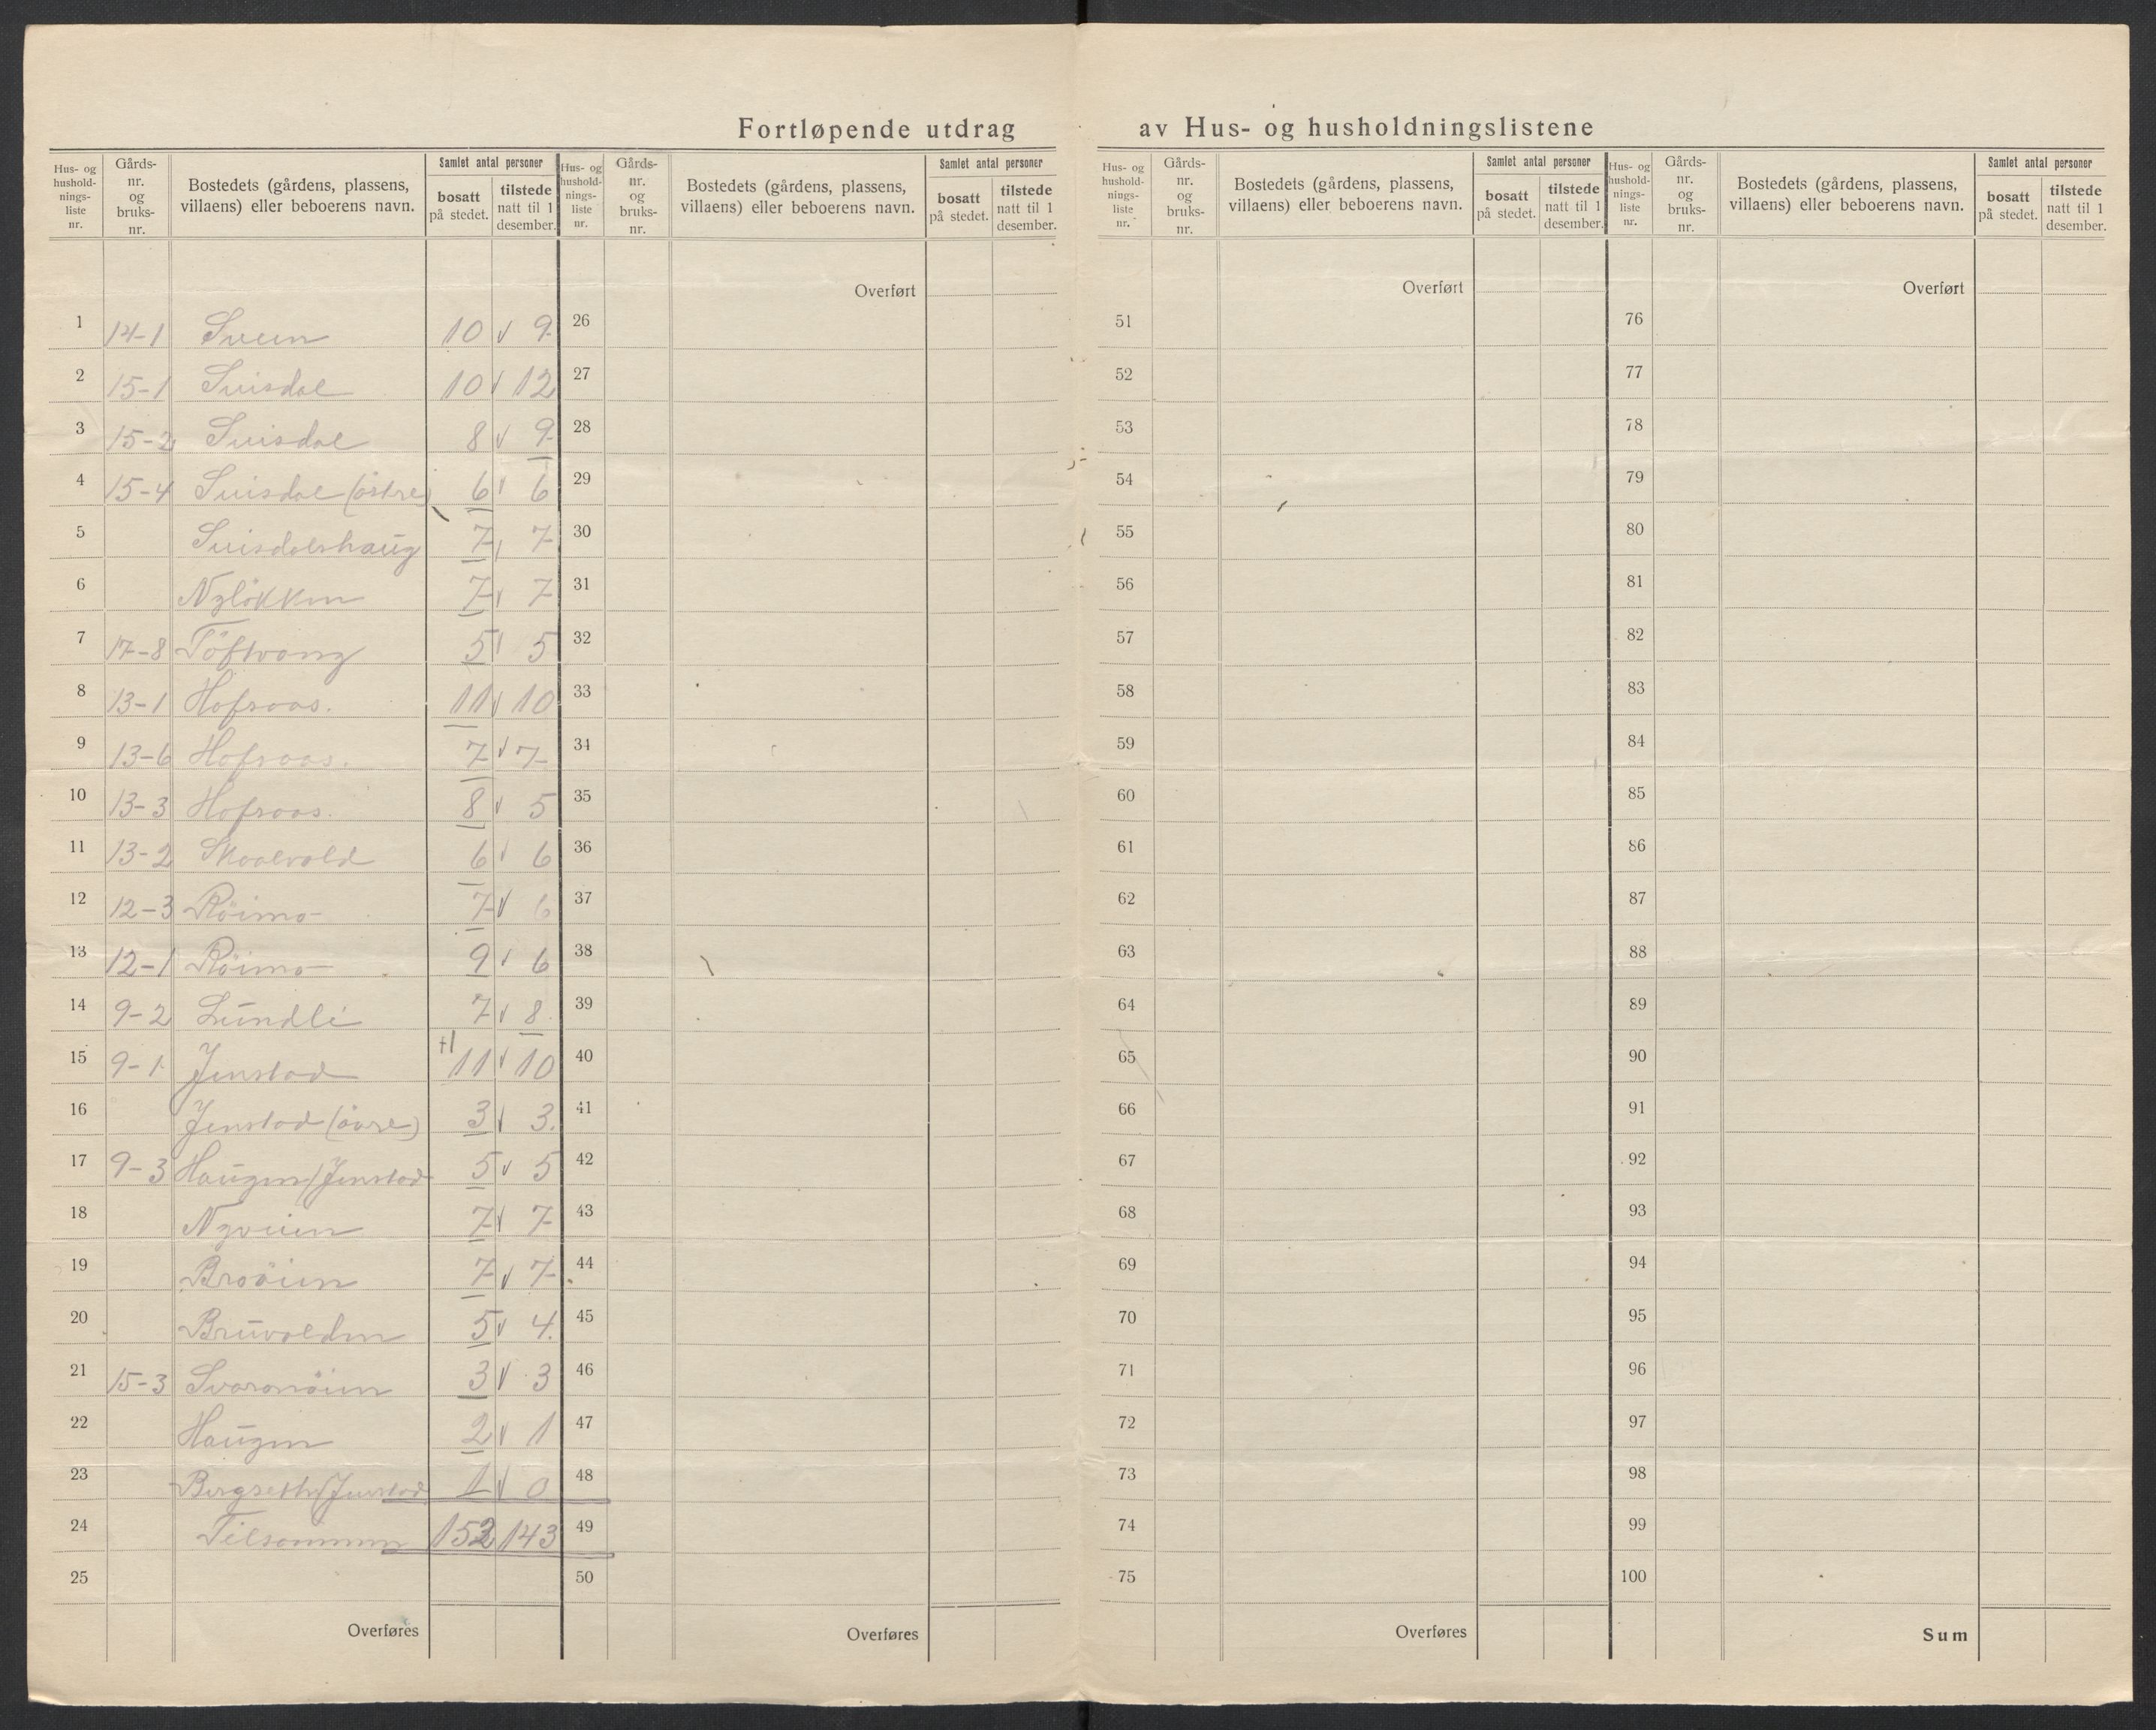 Fortløpende utdrag av Hus- og husholdningslistene
Hus- og hushold-nings-liste nr. Gårds-nr. og bruks-nr. Bostedets (gårdens, plassens, villaens) eller beboerens navn. Samlet antal personer bosatt på stedet. tilstede natt til 1 desember.
Hus- og hushold-nings-liste nr. Gårds-nr. og bruks-nr. Bostedets (gårdens, plassens, villaens) eller beboerens navn. Samlet antal personer bosatt på stedet. tilstede natt til 1 desember.
Hus- og hushold-nings-liste nr. Gårds-nr. og bruks-nr. Bostedets (gårdens, plassens, villaens) eller beboerens navn. Samlet antal personer bosatt på stedet. tilstede natt til 1 desember.
Hus- og hushold-nings-liste nr. Gårds-nr. og bruks-nr. Bostedets (gårdens, plassens, villaens) eller beboerens navn. Samlet antal personer bosatt på stedet. tilstede natt til 1 desember.
Overført Overført Overført
1 14-1 10 9 26 51 76
2 15-1 10 12 27 52 77
3 15-2 8 9 28 53 78
4 15-4 (østre) 6 6 29 54 79
5 7 7 30 55 80
6 Nyløkken 7 7 31 56 81
7 17-8 Töftvang 5 5 32 57 82
8 13-1 Hofsaas. 11 10 33 58 83
9 13-6 Hofsaas. 7 7 34 59 84
10 13-3 Hofsaas. 8 5 35 60 85
11 13-2 Skaalvold 6 6 36 61 86
12 12-3 Röimo 7 6 37 62 87
13 12-1 Röimo 9 6 38 63 88
14 9-2 Lundli 7 8 39 64 89
15 9-1 Jenstad +1 11 10 40 65 90
16 Jenstad (övre) 3 3. 41 66 91
17 9-3 Haugen/Jenstad 5 5 42 67 92
18 Nyveien 7 7 43 68 93
19 Broöien 7 7 44 69 94
20 Bruvolden 5 4. 45 70 95
21 15-3 Svarønöien 3 3 46 71 96
22 Haugen 2 1 47 72 97
23 Bergseth/Jenstad 1 0 48 73 98
24 Tilsammen 152 143 49 74 99
25 50 75 100
Overføres Overføres Overføres Sum